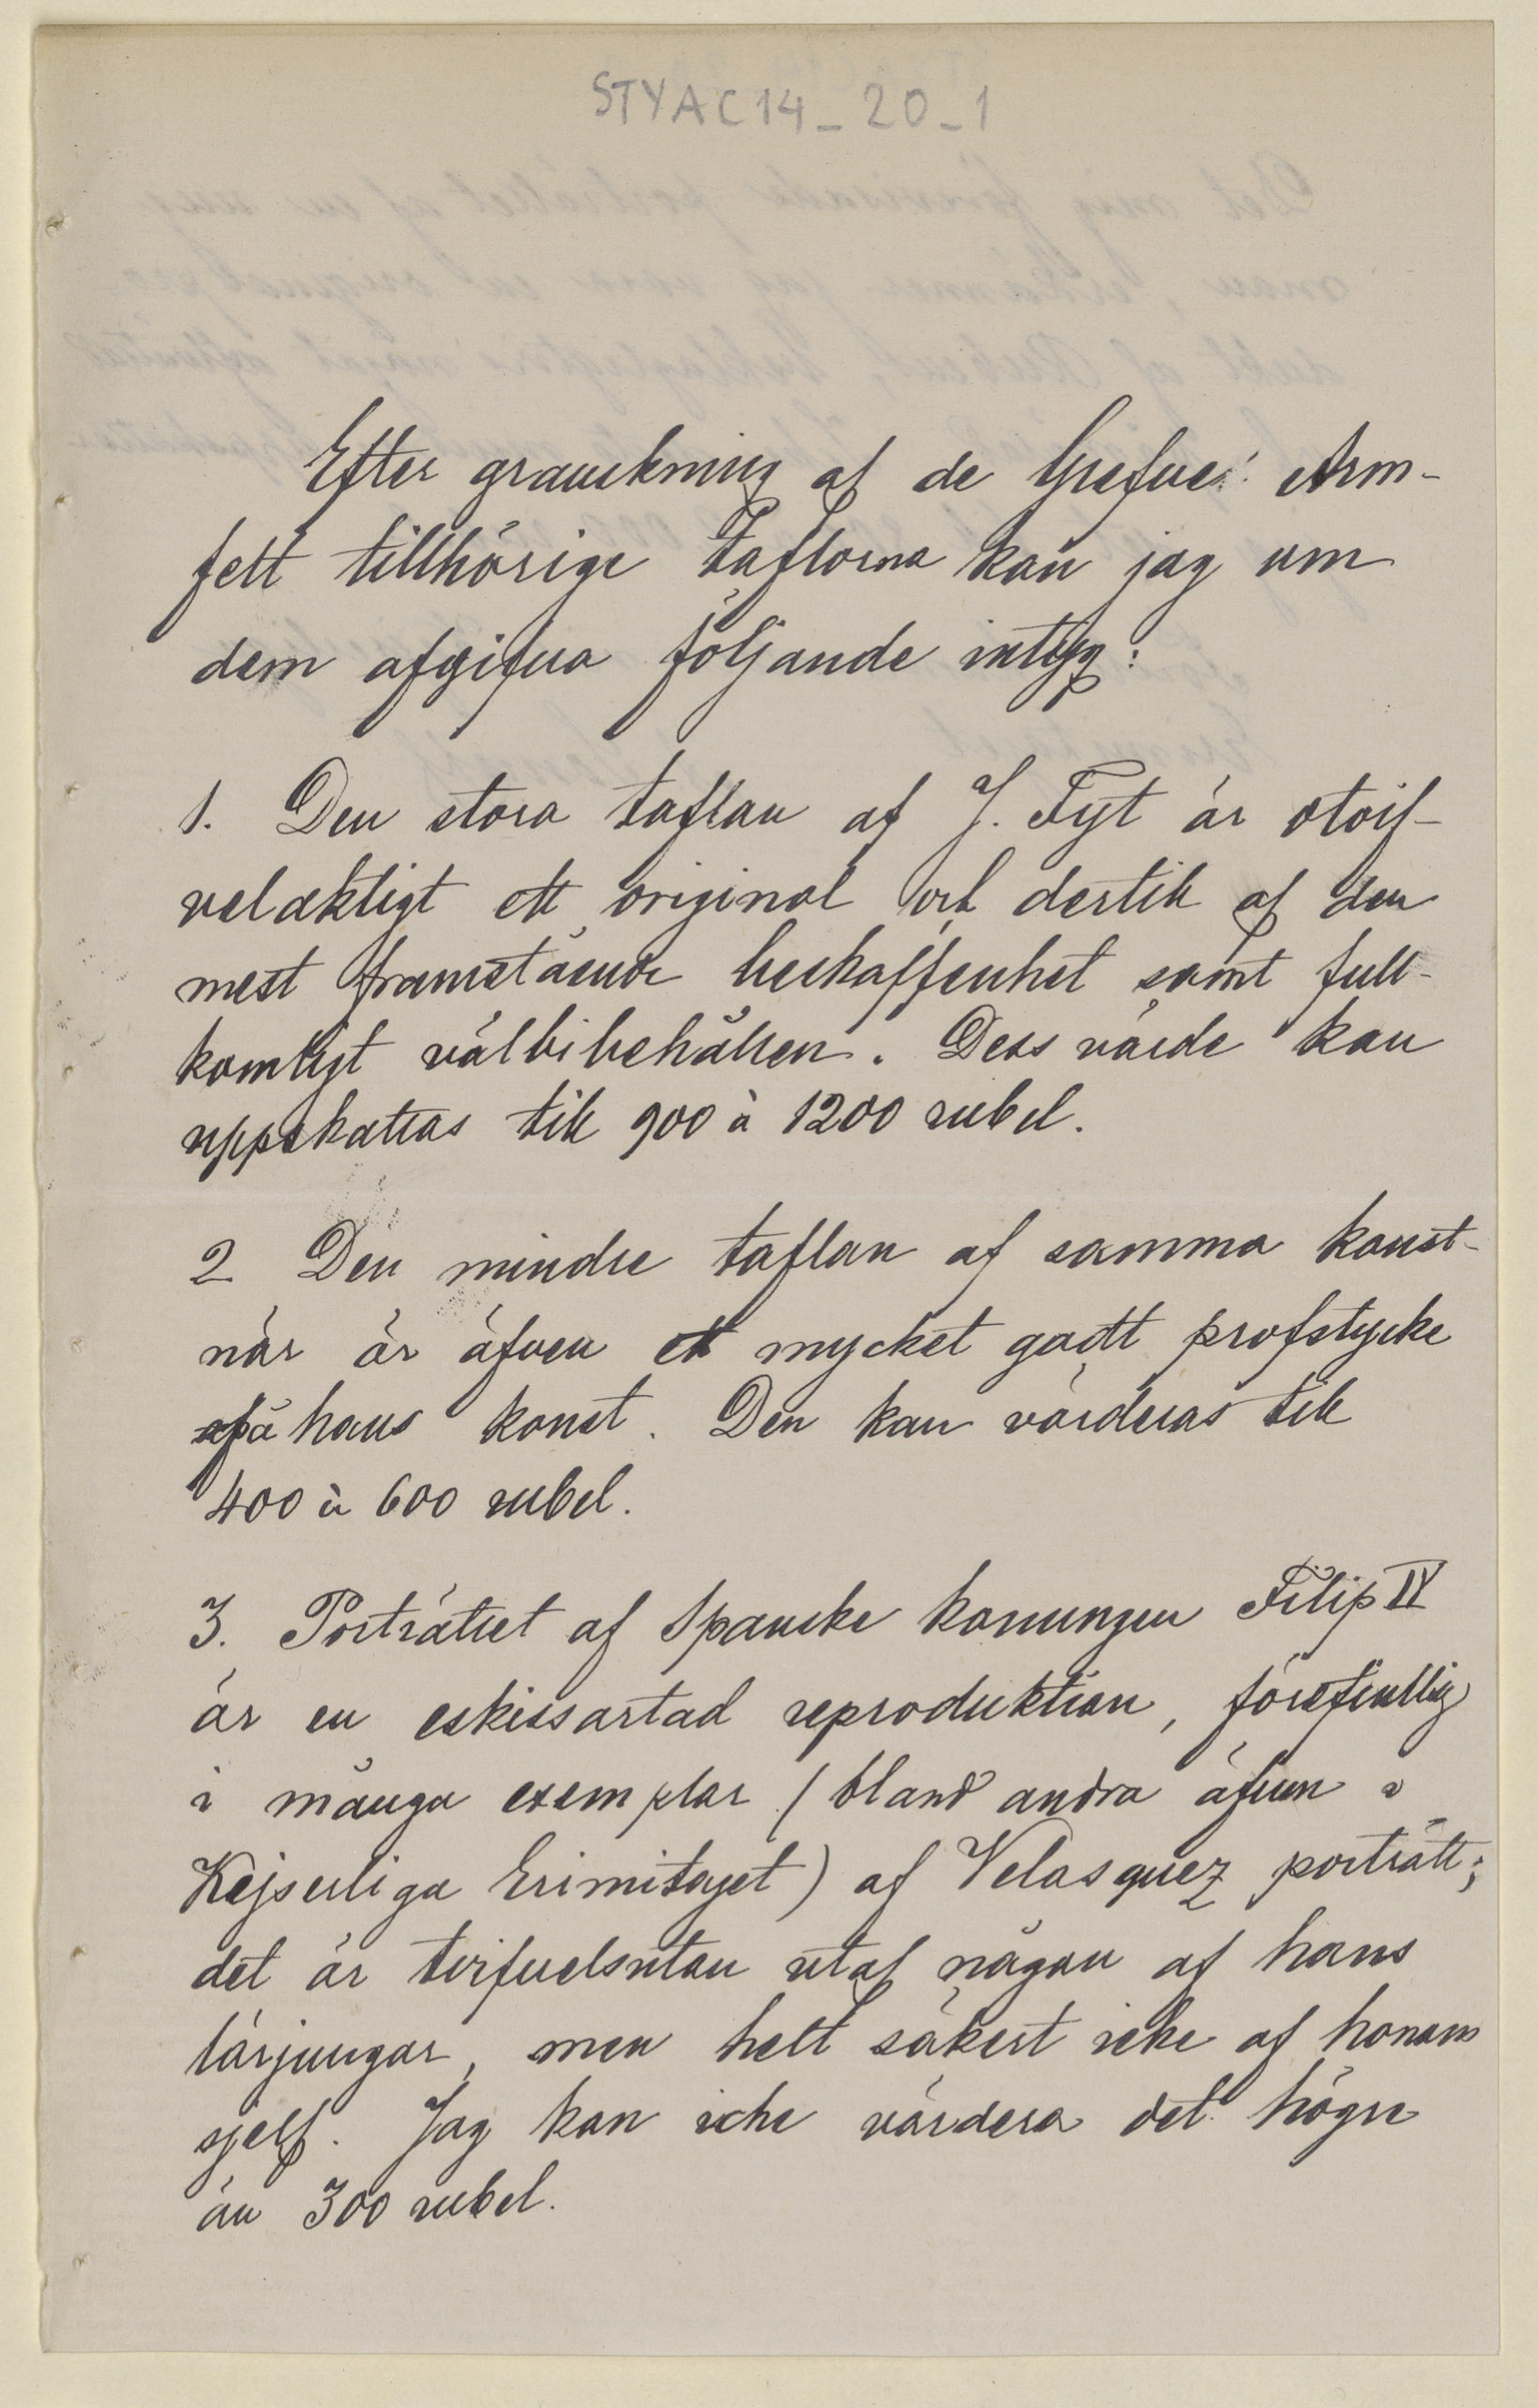 STYAC14_20_1
Efter granskning af de Grefve: Arm-
felt tillhörige taflorna kan jag um
dem afgifva följande intyg:
1. Den stora taflan af J. Fyt är otvif-
velaktigt ett original och dertill af den
mest framstående beskaffenhet samt full-
komligt välbibehållen. Dess värde kan
uppskattas till 900 à 1200 rubel.
2 Den mindre taflan af samma konst-
när är äfven ett mycket godt profstycke
på hans konst. Den kan värderas till
400 à 600 rubel.
3. Porträttet af Spanske konungen Filip IV
är en eskissartad reproduktion, förefintlig
i många exemplar (bland andra äfven i
Kejserliga Erimitaget) af Velasquez porträtt;
det är tvifvelsutan utaf någon af hans
lärjungar, men helt säkert icke af honom
sjelf. Jag kan icke värdera det högre
än 300 rubel.